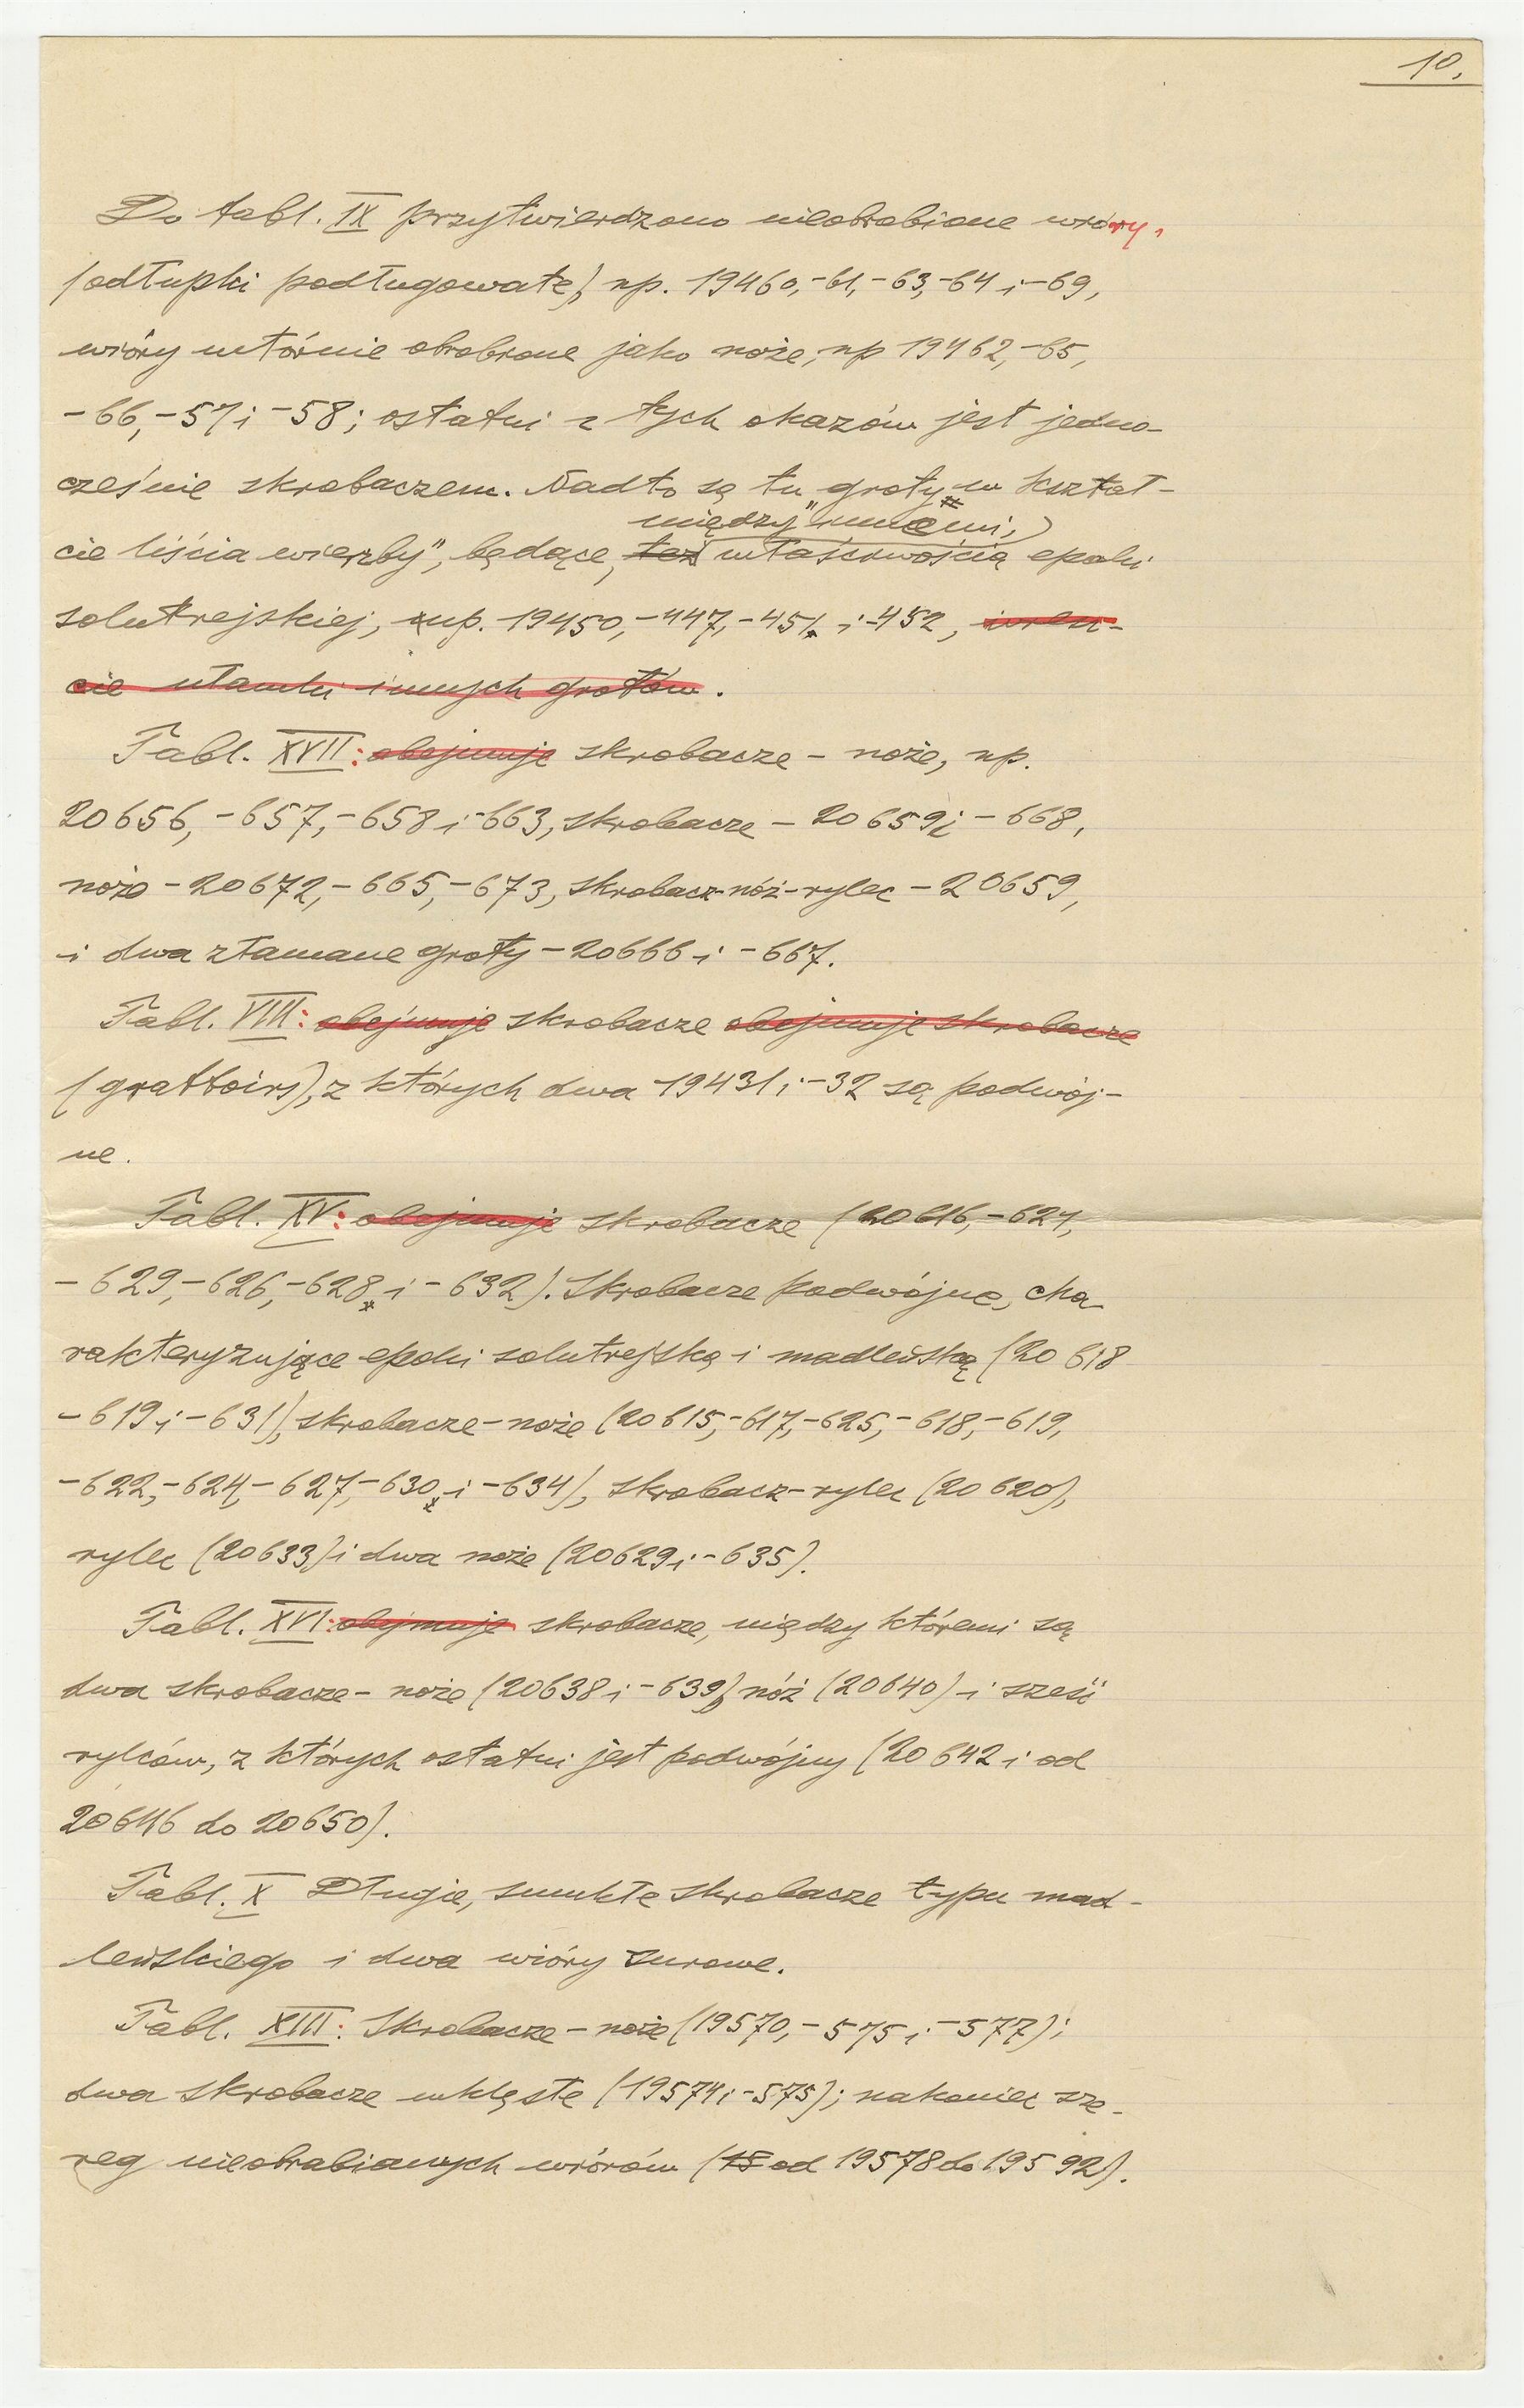 10.
Do tabl. IX przytwierdzono nieobrobione wióry,
(odłupki podługowate), np. 19460,-61,-63,-64 i -69,
wióry wtórnie obrobione jako noże, np 19462,-65,
-66,-57 i -58; ostatni z tych okazów jest jedno-
cześnie skrobaczem. Nadto są tu groty „w kształ-
między innemi,
cie liścia wierzby", będące, też właściwością epoki
solutrejskiej, np. 19450,-447,-451 i -452, wresz-
cie ułamki innych grotów.
Tabl. XVII: obejmuje skrobacze - noże, np.
20656,-657,-658 i -663, skrobacze - 20659 i -668,
noże - 20672,-665,-673, skrobacz-nóż-rylec - 20659,
i dwa złamane groty - 20666 i -667.
Tabl. VIII: obejmuje skrobacze obejmuje skrobacze
(grattoirs), z których dwa -19431 i -32 są podwój-
ne.
Tabl. XV: obejmuje skrobacze (20616,-621,
-629,-626,-628 i -632). Skrobacze podwójne, cha-
rakteryzujące epoki solutrejską i madleńską (20618
-619 i -631), skrobacze-noże (20615,-617,-625,-618,-619,
-622,-624,-627,-630 i -634), skrobacz-rylec (20620),
rylec (20633) i dwa noże (20629 i -635).
Tabl. XVI: obejmuje skrobacze, między któremi są
dwa skrobacze - noże (20638 i -639), nóż (20640) i sześć
rylców, z których ostatni jest podwójny (20642 i od
20646 do 20650).
Tabl. X Długie, smukłe skrobacze typu mad-
leńskiego i dwa wióry surowe.
Tabl. XIII: Skrobacze - noże (19570,-575 i -577);
dwa skrobacze wklęsłe (19574 i -575); nakoniec sze-
reg nieobrabianych wiórów (15 od 19578 do 19592).